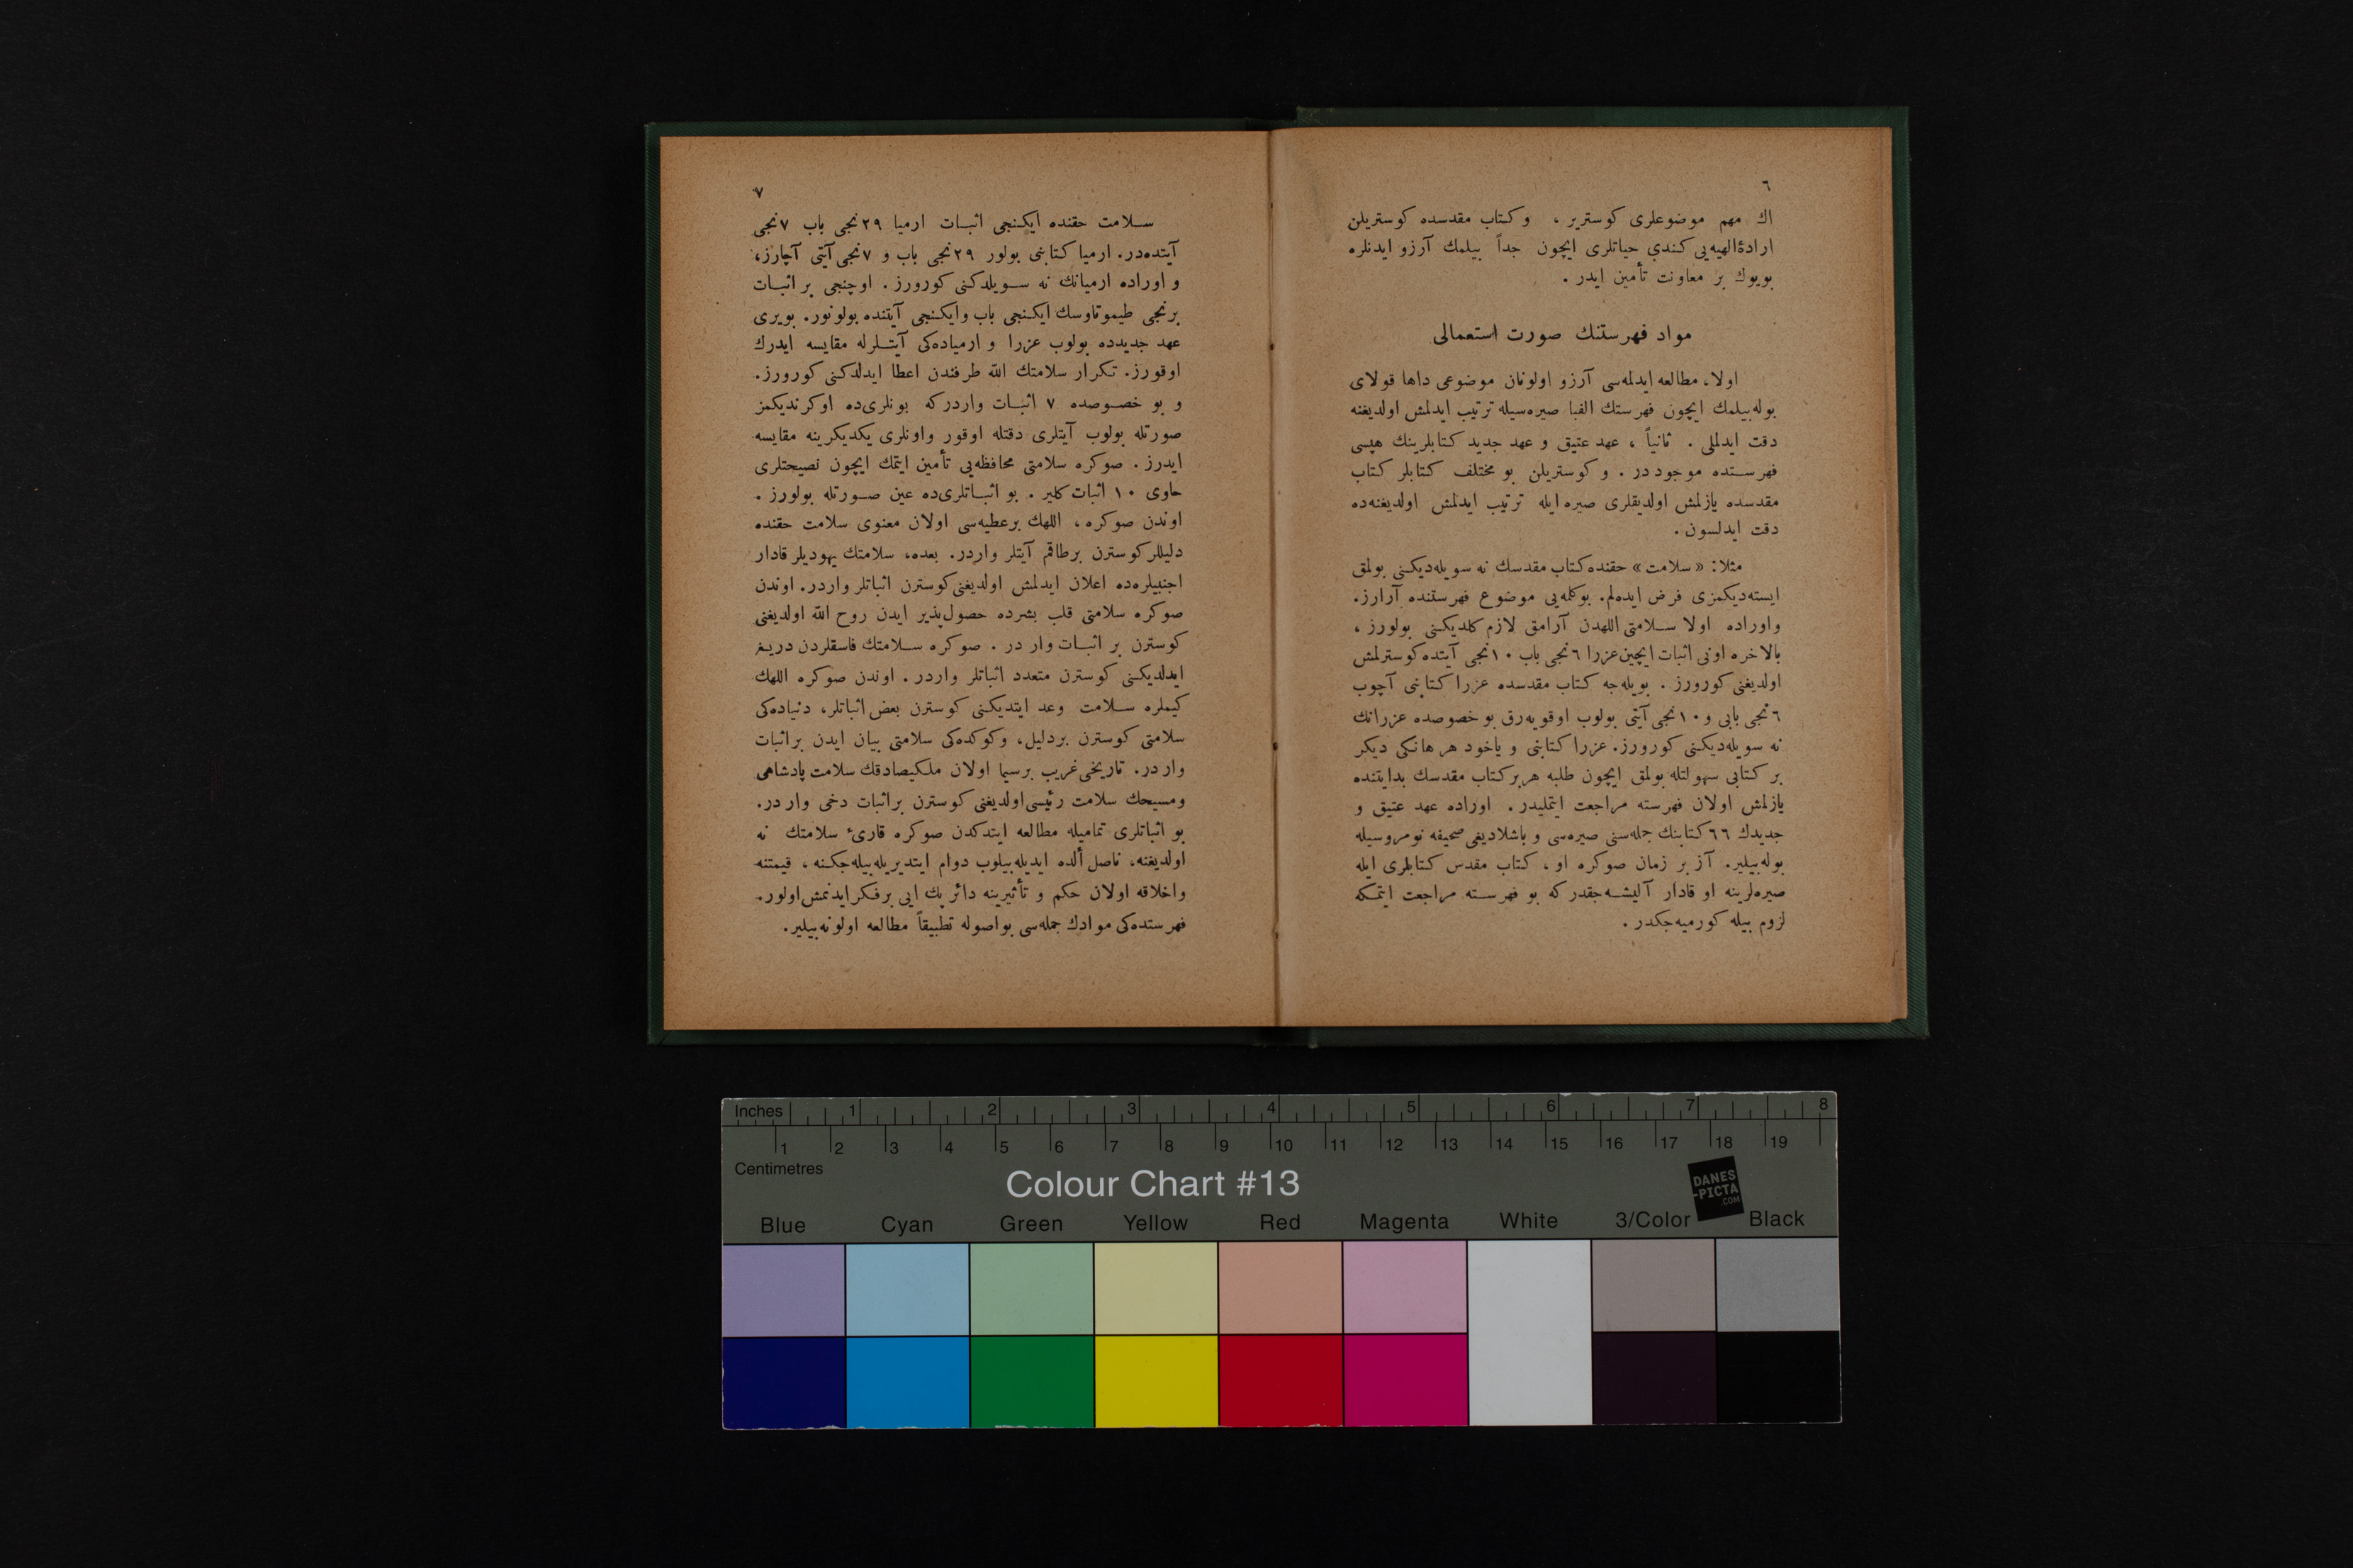 ٦
اك مهم موضوعلری كوستریر ، وكتاب مقدسده كوستریلن
ارادۀ‌الهیه‌یی كندی حیاتلری ایچون جداً بیلمك آرزو ایدنلره
بویوك بر معاونت تأمین ایدر .
مواد فهرستنك صورت استعمالی
اولا، مطالعه ایدلمه‌سی آرزو اولونان موضوعی داها قولای
بوله‌بیلمك ایچون فهرستك الفبا صیره‌سیله ترتیب ایدلمش اولدیغنه
دقت ایدلملی . ثانیاً ، عهد عتیق و عهد جدید كتابلرینك هپسی
فهرستده موجوددر . و كوستریلن بو مختلف كتابلر كتاب
مقدسده یازلمش اولدیقلری صیره ایله ترتیب ایدلمش اولدیغنه‌ده
دقت ایدلسون .
مثلا: «سلامت» حقنده كتاب مقدسك نه سویله‌دیكنی بولمق
ایسته‌دیكمزی فرض ایده‌لم. بوكلمه‌یی موضوع فهرستنده آرارز.
واوراده اولا سلامتی اللهدن آرامق لازم كلدیكنی بولورز ،
بالاخره اونی اثبات ایچین عزرا ٦نجی باب ١٠نجی آیتده كوسترلمش
اولدیغنی كورورز . بویله‌جه كتاب مقدسده عزرا كتابنی آچوب
٦نجی بابی و ١٠نجی آیتی بولوب اوقویه‌رق بو خصوصده عزرانك
نه سویله‌دیكنی كورورز. عزرا كتابنی و یاخود هر هانكی دیكر
بر كتابی سهولتله بولمق ایچون طلبه هر بر كتاب مقدسك بدایتنده
یازلمش اولان فهرسته مراجعت ایتملیدر . اوراده عهد عتیق و
جدیدك ٦٦ كتابنك جمله‌سنی صیره‌سی و باشلادیغی صحیفه نومروسیله
بوله‌بیلیر. آز بر زمان صوكره او ، كتاب مقدس كتابلری ایله
صیره‌لرینه او قادار آلیشه‌جقدر كه بو فهرسته مراجعت ایتمكه
لزوم بیله كورمیه‌جكدر .
٧
سلامت حقنده ایكنجی اثبات ارمیا ٢٩نجی باب ٧نجی
آیتده‌در. ارمیا كتابنی بولور ٢٩نجی باب و ٧نجی آیتی آچارز،
و اوراده ارمیانك نه سویلدكنی كورورز . اوچنجی بر اثبات
برنجی طیموتاوسك ایكنجی باب وایكنجی آیتنده بولونور. بویری
عهد جدیدده بولوب عزرا و ارمیاده‌كی آیتلرله مقایسه ایدرك
اوقورز. تكرار سلامتك الله طرفندن اعطا ایدلدكنی كورورز.
و بو خصوصده ٧ اثبات واردركه بونلری‌ده اوكرندیكمز
صورتله بولوب آیتلری دقتله اوقور واونلری یكدیكرینه مقایسه
ایدرز . صوكره سلامتی محافظه‌یی تأمین ایتمك ایچون نصیحتلری
حاوی ١٠ اثبات كلیر . بو اثباتلری‌ده عین صورتله بولورز .
اوندن صوكره ، اللهك برعطیه‌سی اولان معنوی سلامت حقنده
دلیللر كوسترن برطاقم آیتلر واردر. بعده، سلامتك یهودیلر قادار
اجنبیلره‌ده اعلان ایدلمش اولدیغنی كوسترن اثباتلر واردر. اوندن
صوكره سلامتی قلب بشرده حصول‌پذیر ایدن روح الله اولدیغنی
كوسترن بر اثبات وار در . صوكره سلامتك فاسقلردن دریغ
ایدلدیكنی كوسترن متعدد اثباتلر واردر. اوندن صوكره اللهك
كیملره سلامت وعد ایتدیكنی كوسترن بعض اثباتلر، دنیاده‌كی
سلامتی كوسترن بردلیل، وكوكده‌كی سلامتی بیان ایدن براثبات
وار در. تاریخی غریب برسیما اولان ملكیصادقك سلامت پادشاهی
ومسیحك سلامت رئیسی اولدیغنی كوسترن براثبات دخی وار در.
بو اثباتلری تمامیله مطالعه ایتدكدن صوكره قارئ سلامتك نه
اولدیغنه، ناصل ألده ایدیله‌بیلوب دوام ایتدیریله‌بیله‌جكنه ، قیمتنه
واخلاقه اولان حكم و تأثیرینه دائر پك ایی برفكر ایدنمش اولور.
فهرستده‌كی موادك جمله‌سی بواصوله تطبیقاً مطالعه اولونه‌بیلیر.
Inches 1 2 3 4 5 6 7 8
1 2 3 4 5 6 7 8 9 10 11 12 13 14 15 16 17 18 19
Centimetres
Colour Chart #13
DANES
-PICTA
.COM
Blue Cyan Green Yellow Red Magenta White 3/Color Black